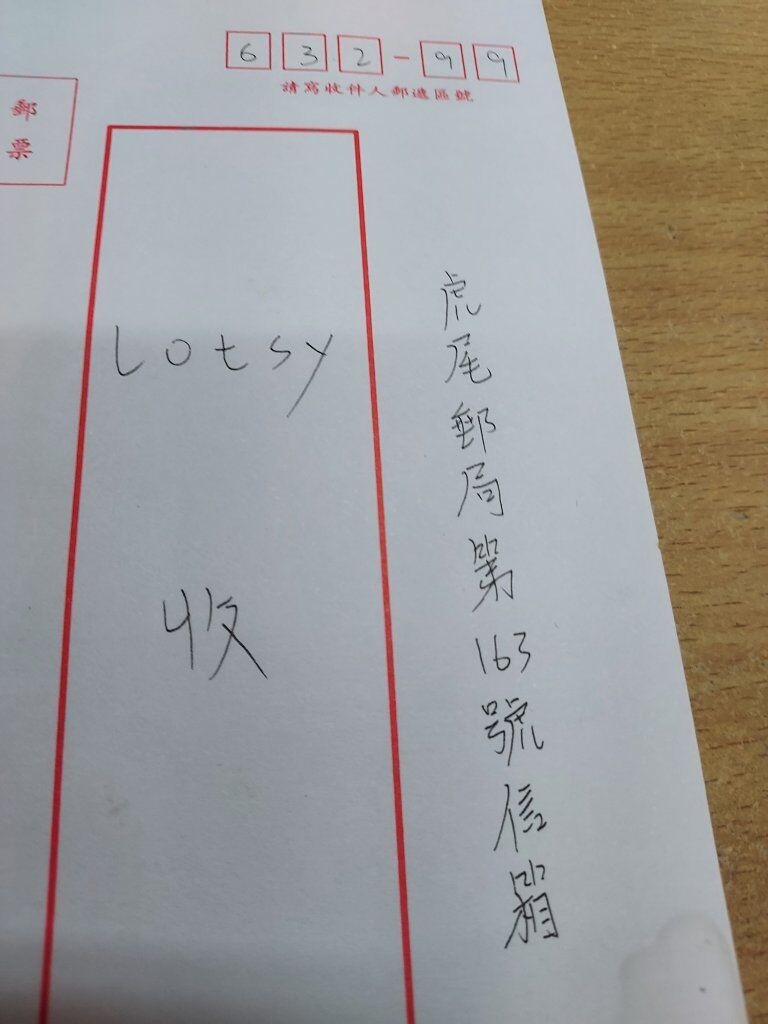 632-99
請寫收件人郵遞區號
郵票
虎尾郵局第163號信箱
Lotsy
收